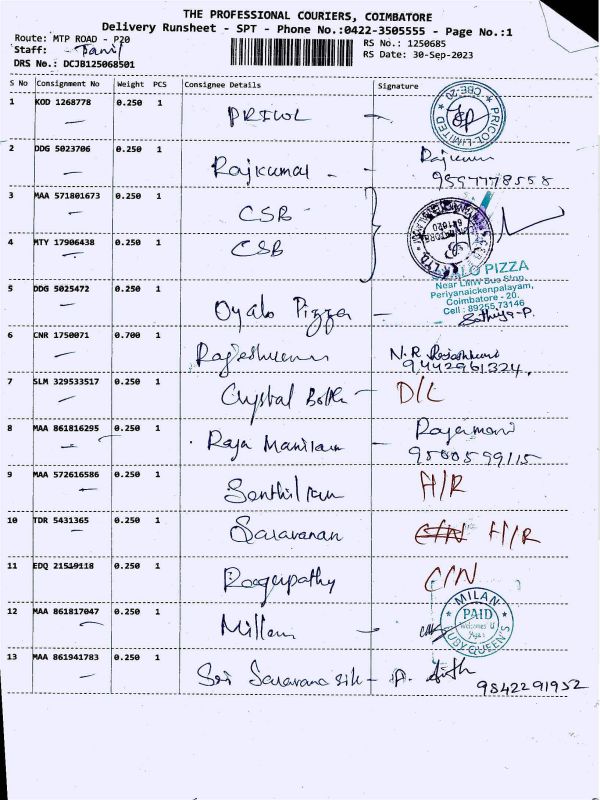 THE PROFESSIONAL COURIERS, COIMBATORE
Delivery Runsheet - SPT - Phone No.:0422-3505555 - Page No.:1
Route: MTP ROAD - P20
RS No.: 1250685
Staff:
RS Date: 30-Sep-2023
DRS No.: DCJB125068501
S No Consignment No Weight PCS Consignee Details Signature
1 KOD 1268778 0.250 1 PRICOL
PRICOL LIMITED * CBE-20 *
2 DDG 5023706 0.250 1 Rajkumar - Rajkumar
9597778558
3 MAA 571801673 0.250 1 CSB
4 MTY 17906438 0.250 1 CSB
641020
5 DDG 5025472 0.250 1 Oyalo Pizza
OYALO PIZZA
Near LMW Bus Stop,
Periyanaickenpalayam,
Coimbatore - 20.
Cell : 89255 73146
Sathiya-P.
6 CNR 1750071 0.700 1 N.R. Rajeshkumar
9442961324,
7 SLM 329533517 0.250 1 Crystal - D/L
8 MAA 861816295 0.250 1 Raja Manikam - Rajamani
9500599115
9 MAA 572616586 0.250 1 Senthil H/R
10 TDR 5431365 0.250 1 Saravanan C/N H/R
11 EDQ 21519118 0.250 1 C/N
12 MAA 861817047 0.250 1 Millan -
MILAN
PAID
Welcomes U
Again
RUBY QUEEN'S
13 MAA 861941783 0.250 1 Sri Saravana silk -
9842291952